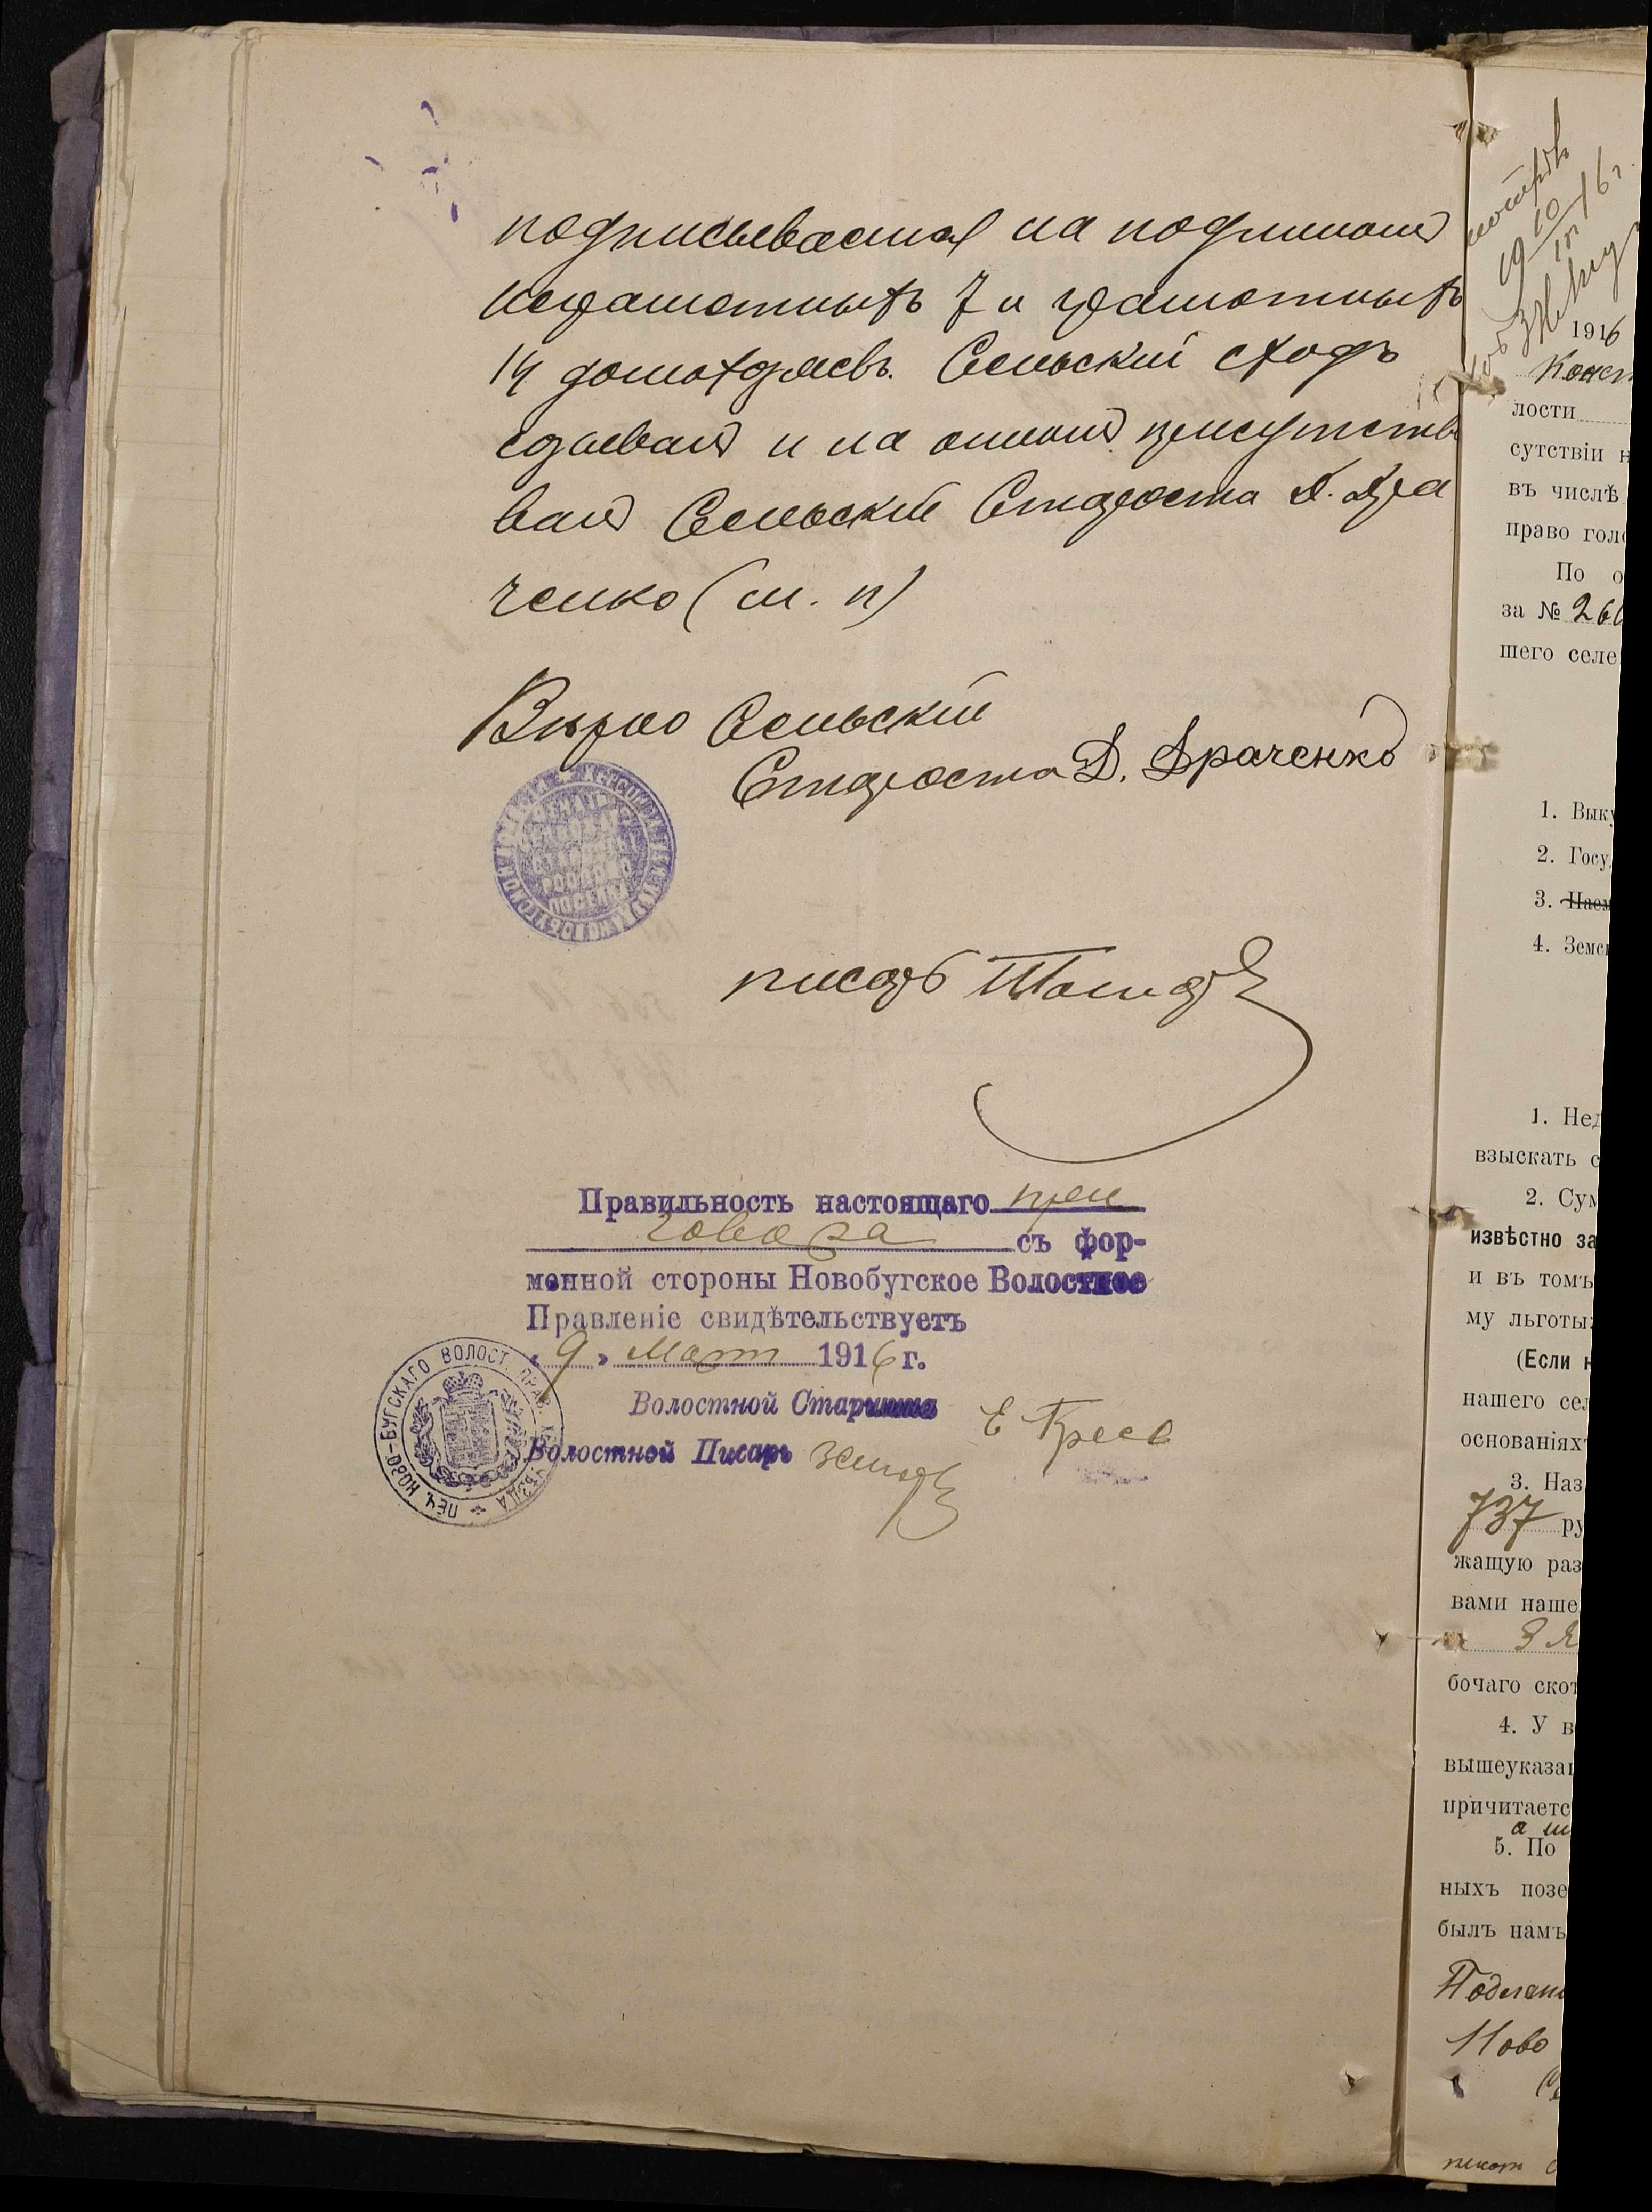 подписываемся на подлиномъ
неграмотныхъ 7 и грамотныхъ
14 домохозяевъ. Сельскій сходъ
созывалъ и на ономъ присутство
валъ Сельскій Староста Д. Дра
ченко (м. п)
Вѣрно Сельскій
Староста Д. Драченко
писарь
Правильность настоящаго при
говора съ фор-
менной стороны Новобугское Волостное
Правленіе свидѣтельствуетъ
„ 9 „ Март 1916 г.
Волостной Старшина
Волостной Писарь
ПЕЧ. НОВО-БУГСКАГО ВОЛОСТ. ПРАВ. УѢЗДА
1916
Конст
лости
сутствіи н
въ числѣ
право голо
По о
за № 260
шего селе
1. Выку
2. Госу
3. Наем
4. Земс
1. Нед
взыскать с
2. Сум
извѣстно за
и въ томъ
му льготы
(Если н
нашего се
основаніях
3. Наз
737 ру
жащую раз
вами наше
бочаго скот
4. У в
вышеуказа
причитаетс
5. По
ныхъ позе
былъ намъ
Ново